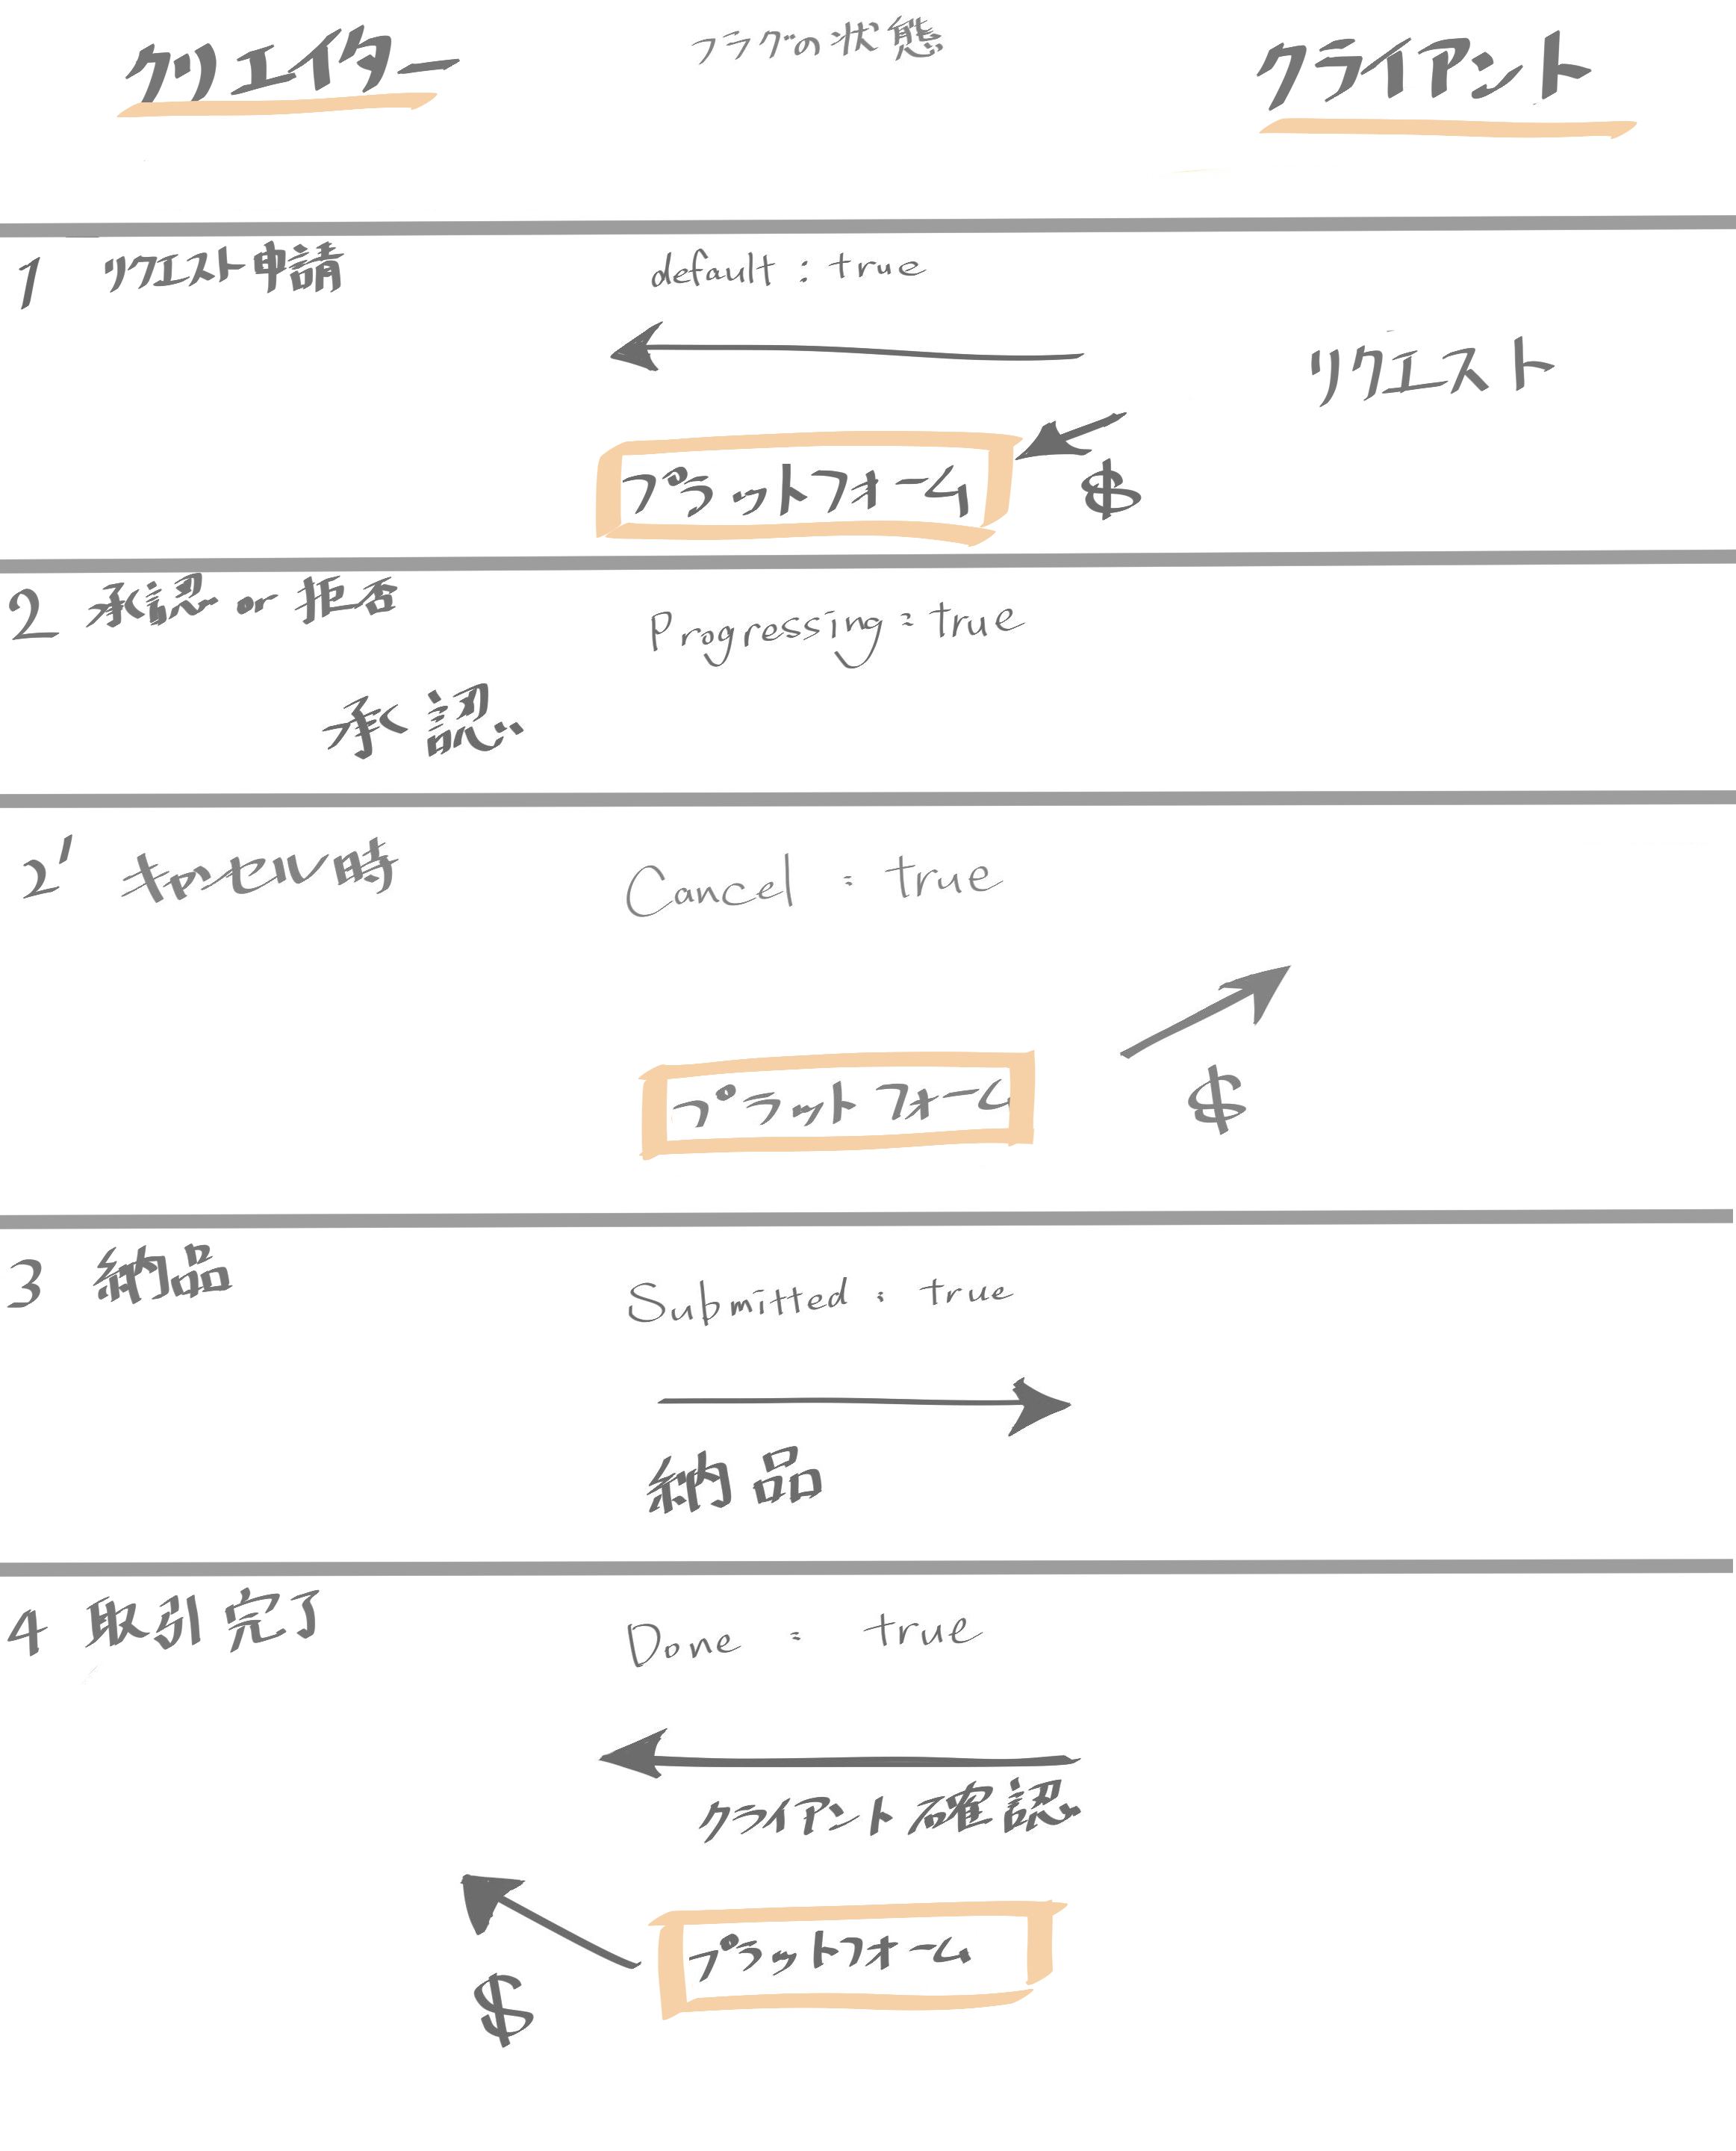 クリエイター
フラグの状態
クライアント
1 リクエスト申請
default : true
リクエスト
プラットフォーム
$
2 承認 or 拒否
Progressing : true
承認
2' キャンセル時
Cancel : true
プラットフォーム
$
3 納品
Submitted : true
納品
4 取引完了
Done : true
クライアント確認
プラットフォーム
$